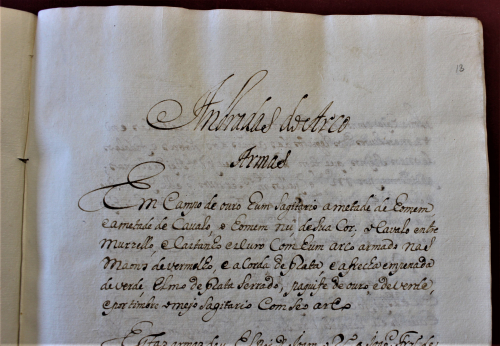 13
Andradas do Arco
Armas
Em Campo de ouro hum Sagitario ametade de homem
e ametade de Cavalo, o homem nu de sua Cor, o Cavalo entre
Murzello, e Castanho escuro Com hum arco armado nas
Mamos de vermelho, e a Corda de Prata, e a frecha empenada
de verde Elmo de Prata serrado, paquife de ouro e de verde,
e por timbre o mejo sagitario Com seo arco